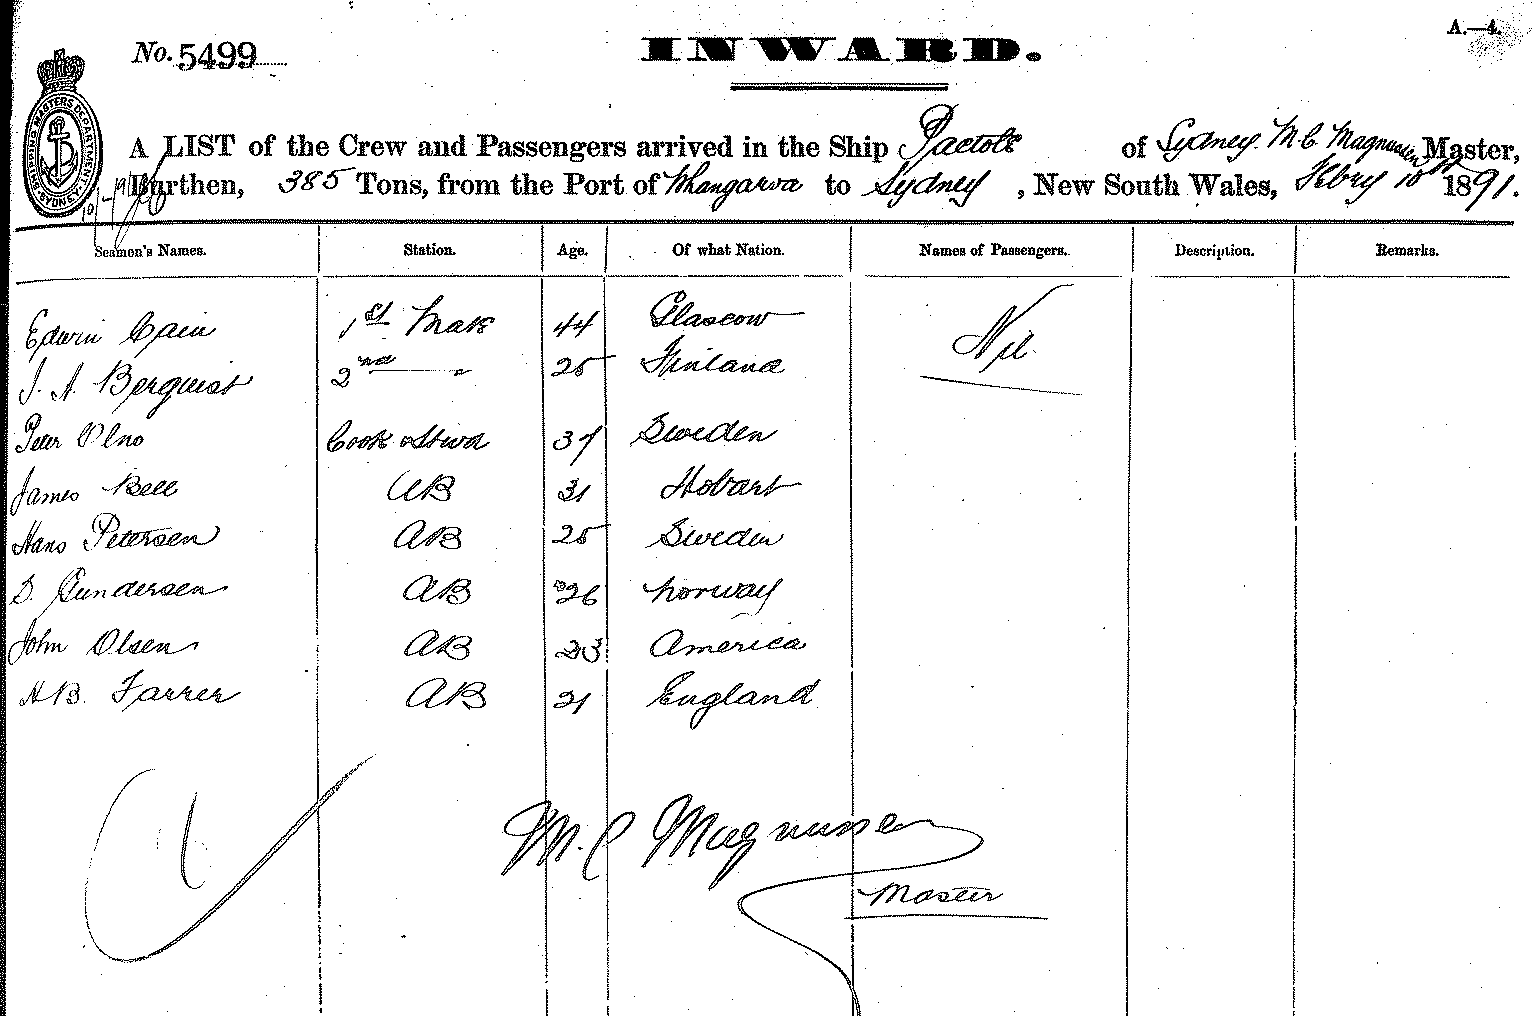 No. 5499
INWARD.
A.—4.
SHIPPING MASTERS DEPARTMENT SYDNEY
A LIST of the Crew and Passengers arrived in the Ship Pactolt of Sydney. M. C Magnussen Master,
Burthen, 385 Tons, from the Port of Whangaroa to Sydney , New South Wales, Febry 10th 1891.
Seamen's Names. Station. Age. Of what Nation. Names of Passengers. Description. Remarks.
Edwin Cain 1st Mate 44 Glascow Nil
J. A. Berquist 2nd " 25 Finland
Peter Olno Cook & Stwd 37 Sweden
James Bell AB 31 Hobart
Hans Petersen AB 25 Sweden
D. Gundersen AB 26 Norway
John Olsen AB 23 America
H B. Farrer AB 21 England
M. C Magnussen
Master